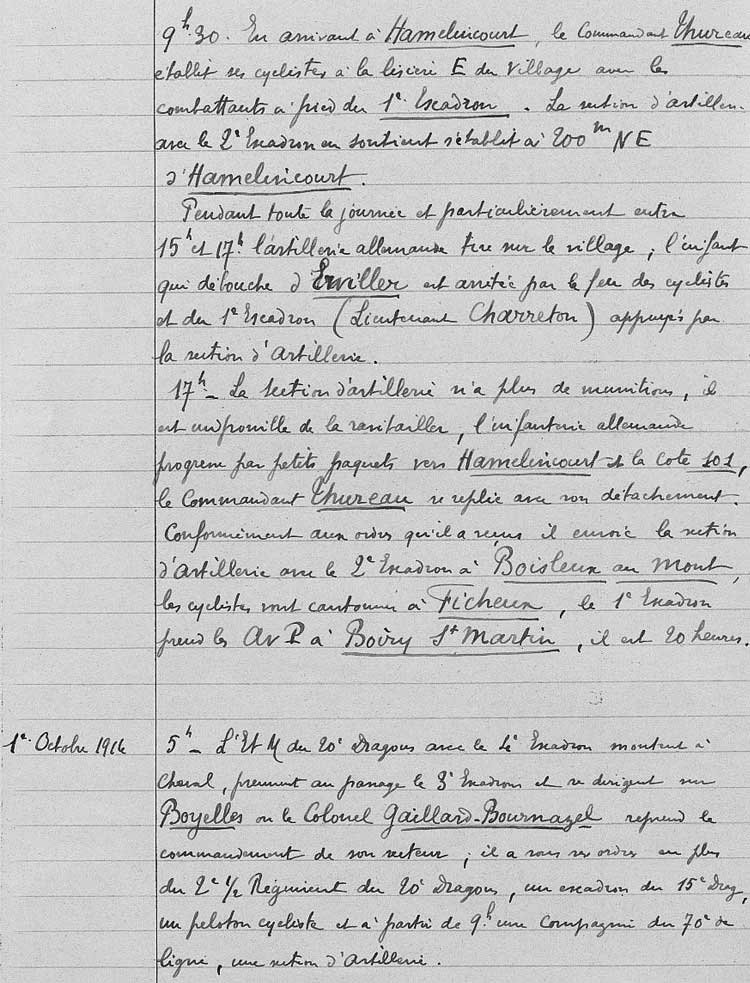 9h.30. En arrivant à Hamelincourt, le Commandant Thureau
établit ses cyclistes à la lisière E du village avec les
combattants à pied du 1e Escadron. La section d'artillerie
avec le 2e Escadron en soutient s'établit à 200m NE
d'Hamelincourt.
Pendant toute la journée et particulièrement entre
15h et 17h. l'artillerie allemande tire sur le village ; l'infant
qui débouche d'Erviller est arrêtée par le feu des cyclistes
et du 1e Escadron (Lieutenant Charreton) appuyés par
la section d'Artillerie.
17h_ La section d'artillerie n'a plus de munitions, il
est impossible de la ravitailler, l'infanterie allemande
progresse par petits paquets vers Hamelincourt et la cote 101,
le Commandant Thureau se replie avec son détachement.
Conformément aux ordres qu'il a reçus il envoie la section
d'Artillerie avec le 2e Escadron à Boisleux au Mont,
les cyclistes vont cantonner à Ficheux, le 1e Escadron
prend les Av P à Boiry St Martin, il est 20 heures.
1e Octobre 1914
5h_ L'Et M du 20e Dragons avec le 4e Escadron montent à
cheval, prennent au passage le 3e Escadrons et se dirigent sur
Boyelles ou le Colonel Gaillard-Bournazel reprend le
commandement de son secteur ; il a sous ses ordres en plus
du 2e 1/2 Régiment du 20e Dragons, un escadron du 15e Drag,
un peloton cycliste et à partir de 9h. une Compagnie du 70e de
ligne, une section d'Artillerie.